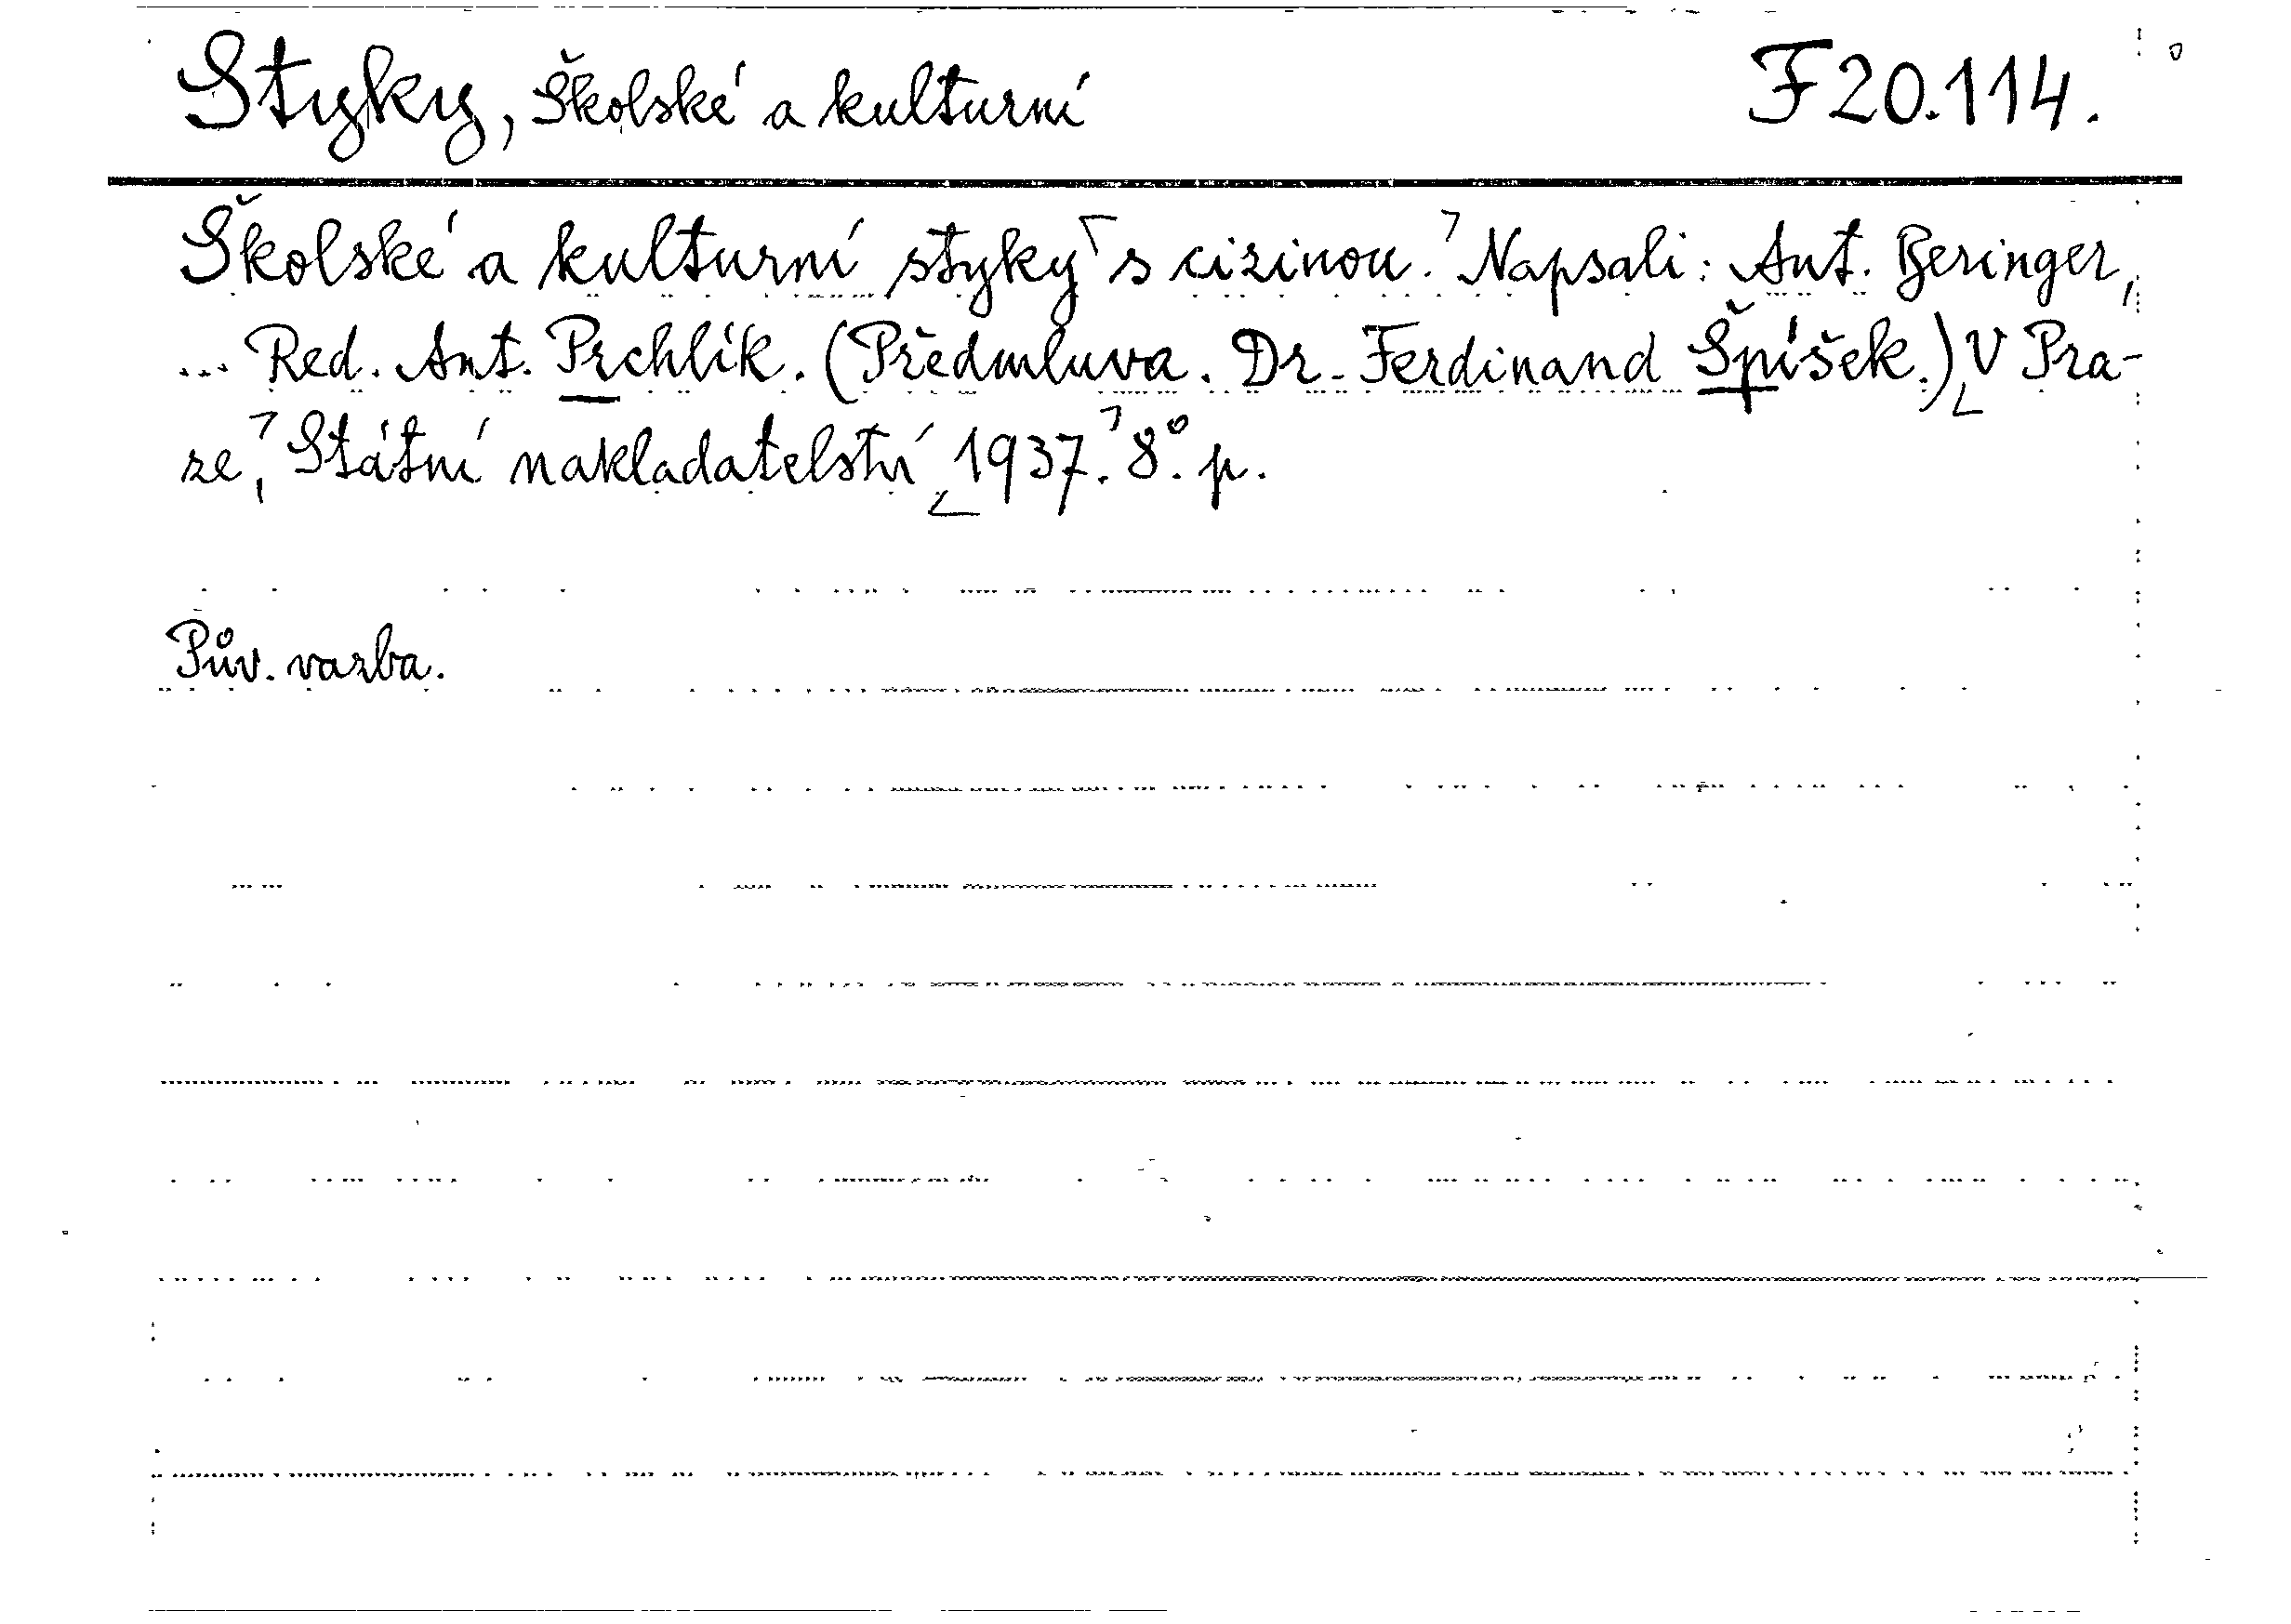 Styky, Školské a kulturní F 20.114.
Školské a kulturní styky s cizinou. Napsali: Ant. Beringer,
... Red. Ant. Prchlík. (Předmluva. Dr. Ferdinand Špíšek.) V Pra-
ze, Státní nakladatelství 1937. 8°. p.
Pův. vazba.